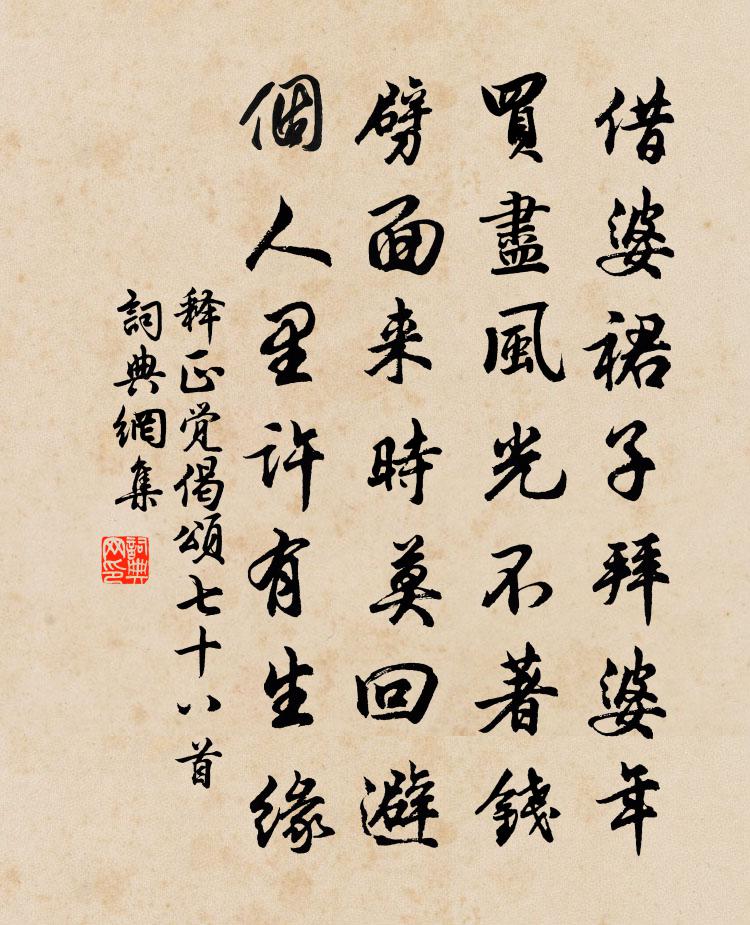 借婆裙子拜婆年
買盡風光不著錢
劈面来時莫回避
個人里許有生緣
释正觉偈頌七十八首
詞典網集
詞典网印